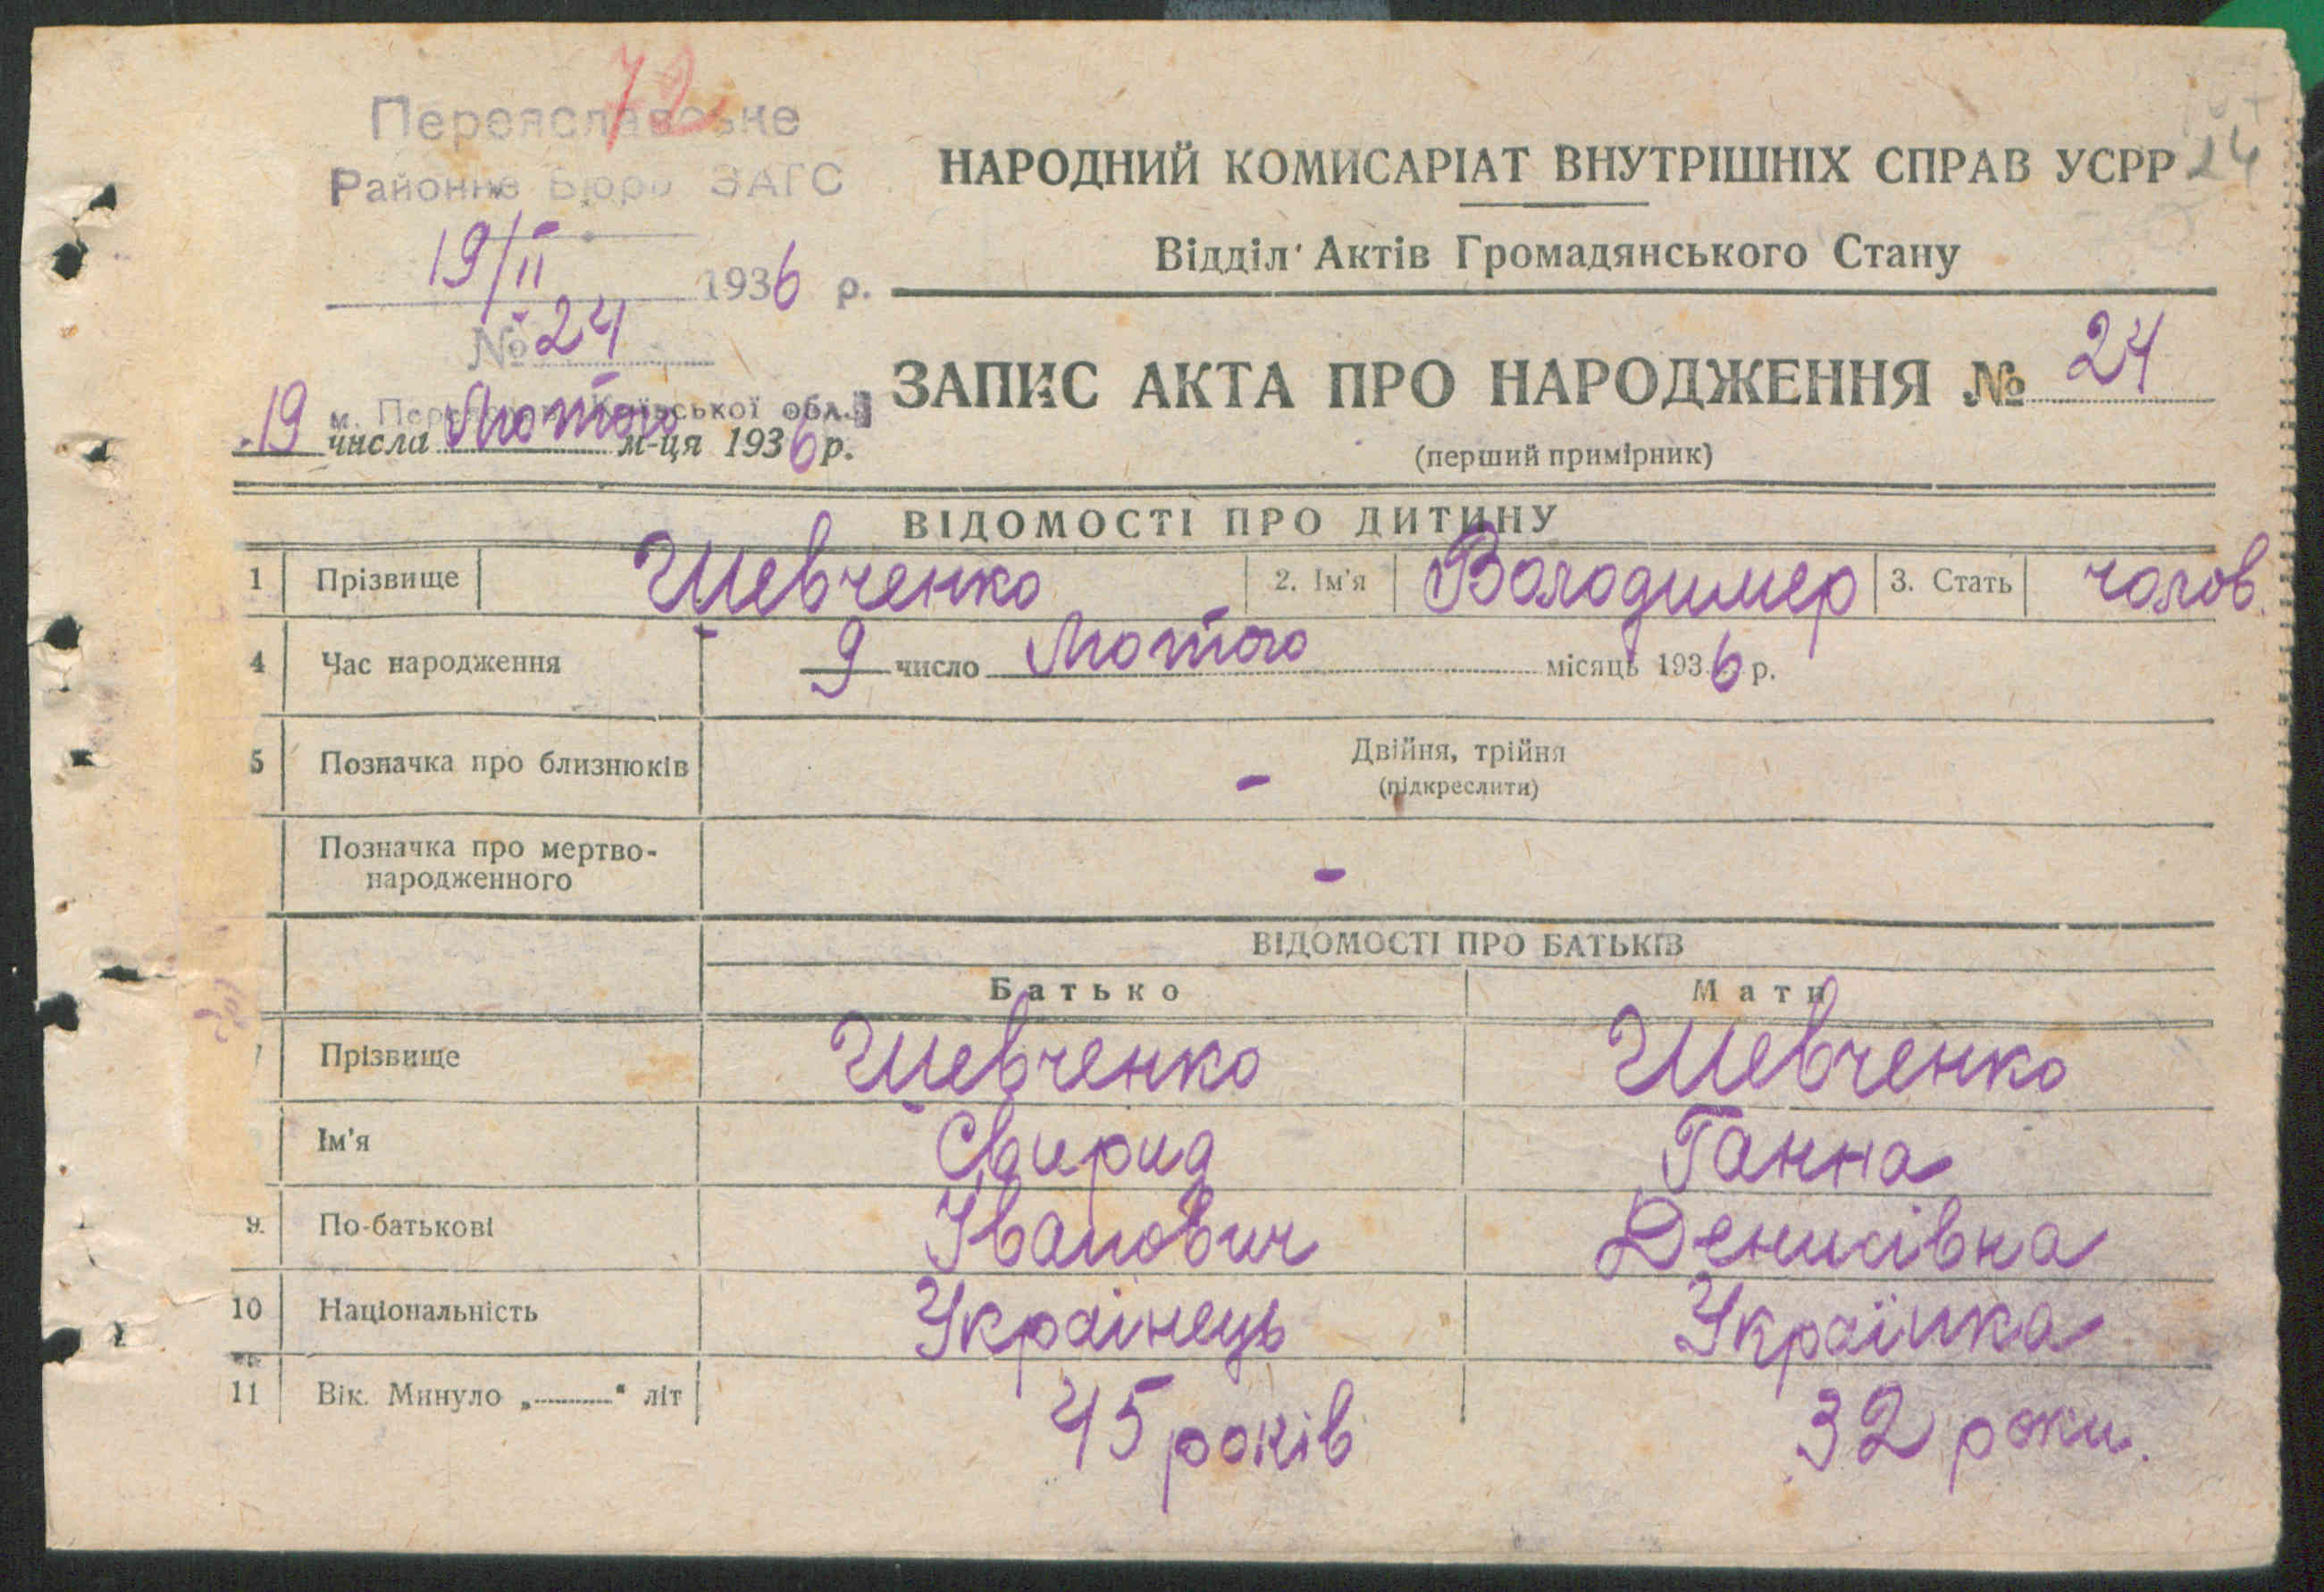 72
Переяславське
Районне Бюро ЗАГС
19/II 1936 р.
№ 24
м. Переяслав Київської обл.
19 числа Лютого м-ця 1936 р.
НАРОДНИЙ КОМИСАРІАТ ВНУТРІШНІХ СПРАВ УСРР 24
Відділ Актів Громадянського Стану
ЗАПИС АКТА ПРО НАРОДЖЕННЯ № 24
(перший примірник)
ВІДОМОСТІ ПРО ДИТИНУ
1 Прізвище Шевченко 2. Ім'я Володимер 3. Стать чолов.
4 Час народження 9 число Лютого місяць 1936 р.
5 Позначка про близнюків - Двійня, трійня
(підкреслити)
Позначка про мертво-
народженного -
ВІДОМОСТІ ПРО БАТЬКІВ
Батько Мати
7 Прізвище Шевченко Шевченко
Ім'я Свирид Ганна
9. По-батькові Іванович Денисівна
10 Національність Українець Українка
11 Вік. Минуло „ " літ 45 років 32 роки.